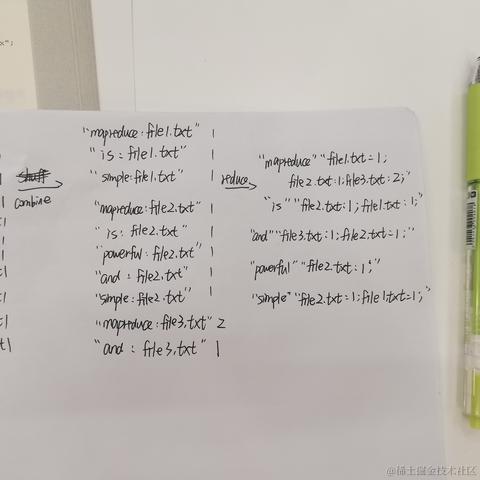 x";
"mapreduce:file1.txt" 1
"is:file1.txt" 1
"simple:file1.txt" 1
"mapreduce:file2.txt" 1
"is:file2.txt" 1
"powerful:file2.txt" 1
"and:file2.txt" 1
"simple:file2.txt" 1
"mapreduce:file3.txt" 2
"and:file3.txt" 1
combine
reduce
"mapreduce" "file1.txt=1;
file2.txt:1;file3.txt:2;"
"is" "file2.txt:1;file1.txt:1;"
"and" "file3.txt:1;file2.txt=1;"
"powerful" "file2.txt:1;"
"simple" "file2.txt=1;file1.txt=1;"
@稀土掘金技术社区